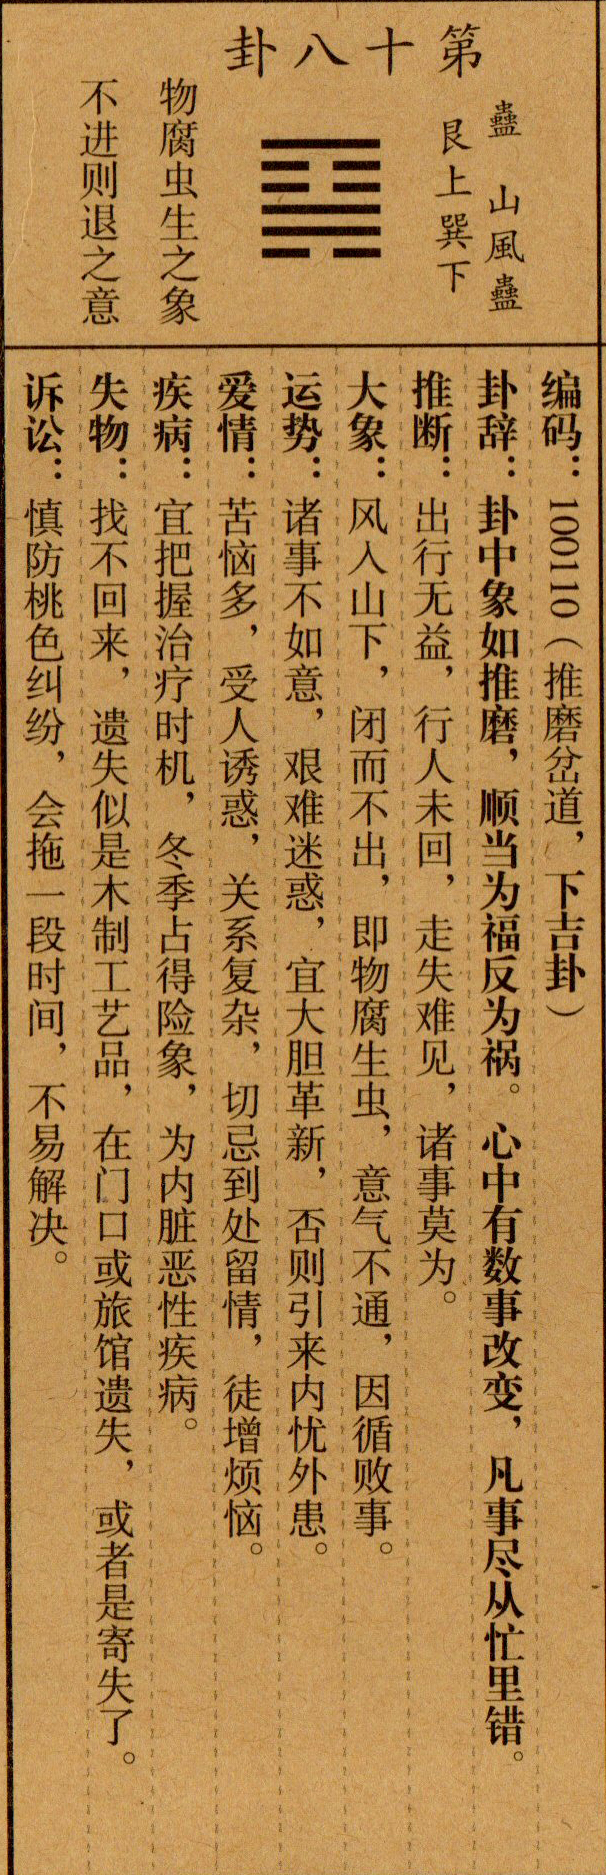 第十八卦
蠱 山風蠱
艮上巽下
物腐虫生之象
不进则退之意
编码：100110（推磨岔道，下吉卦）
卦辞：卦中象如推磨，顺当为福反为祸。心中有数事改变，凡事尽从忙里错。
推断：出行无益，行人未回，走失难见，诸事莫为。
大象：风入山下，闭而不出，即物腐生虫，意气不通，因循败事。
运势：诸事不如意，艰难迷惑，宜大胆革新，否则引来内忧外患。
爱情：苦恼多，受人诱惑，关系复杂，切忌到处留情，徒增烦恼。
疾病：宜把握治疗时机，冬季占得险象，为内脏恶性疾病。
失物：找不回来，遗失似是木制工艺品，在门口或旅馆遗失，或者是寄失了。
诉讼：慎防桃色纠纷，会拖一段时间，不易解决。